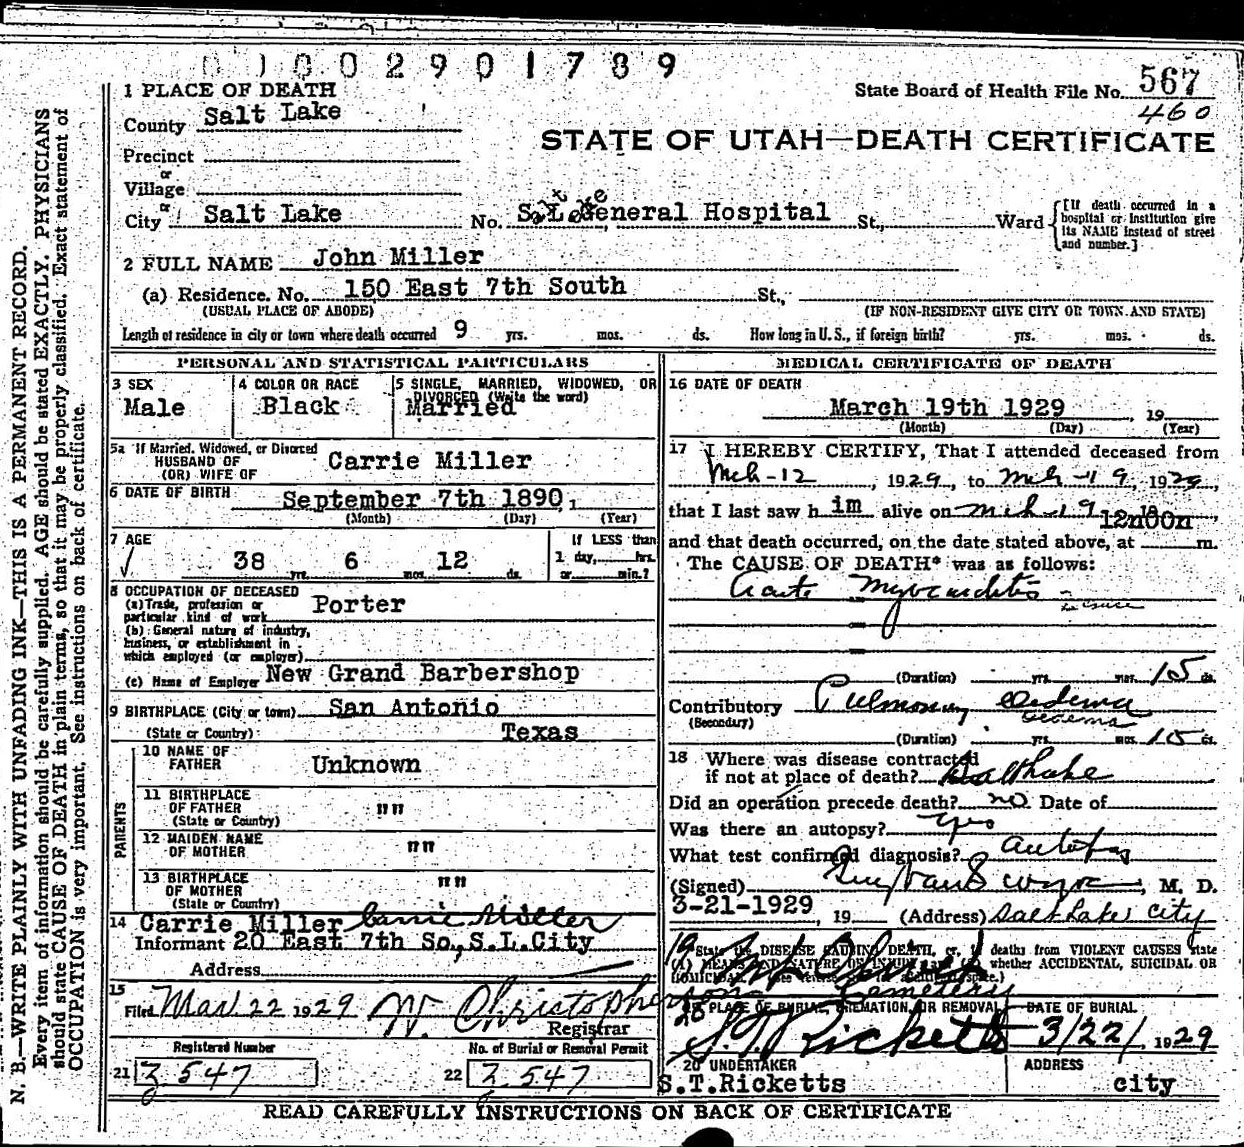 0 1 0 0 2 9 0 1 7 8 9
1 PLACE OF DEATH
State Board of Health File No. 567
460
County Salt Lake
STATE OF UTAH—DEATH CERTIFICATE
Precinct
or
Village
or
City Salt Lake No. S.L. General Hospital St., Ward
Salt Lake
[If death occurred in a hospital or institution give its NAME instead of street and number.]
2 FULL NAME John Miller
(a) Residence. No. 150 East 7th South St.,
(USUAL PLACE OF ABODE) (IF NON-RESIDENT GIVE CITY OR TOWN AND STATE)
Length of residence in city or town where death occurred 9 yrs. mos. ds. How long in U.S., if foreign birth? yrs. mos. ds.
PERSONAL AND STATISTICAL PARTICULARS
3 SEX
Male
4 COLOR OR RACE
Black
5 SINGLE, MARRIED, WIDOWED, OR
DIVORCED (Write the word)
Married
5a If Married, Widowed, or Divorced
HUSBAND OF
(OR) WIFE OF
Carrie Miller
6 DATE OF BIRTH September 7th 1890
(Month) (Day) (Year)
7 AGE
38 yrs. 6 mos. 12 ds.
If LESS than
1 day, hrs.
or min.?
8 OCCUPATION OF DECEASED
(a) Trade, profession or
particular kind of work Porter
(b) General nature of industry,
business, or establishment in
which employed (or employer)
(c) Name of Employer New Grand Barbershop
9 BIRTHPLACE (City or town) San Antonio
(State or Country) Texas
PARENTS
10 NAME OF
FATHER Unknown
11 BIRTHPLACE
OF FATHER
(State or Country) " "
12 MAIDEN NAME
OF MOTHER " "
13 BIRTHPLACE
OF MOTHER
(State or Country) " "
14 Carrie Miller Carrie Miller
Informant 20 East 7th So., S.L.City
Address
15
Filed Mar 22 1929 W. Christopherson
Registrar
Registered Number
21 Z 547
No. of Burial or Removal Permit
22 Z 547
MEDICAL CERTIFICATE OF DEATH
16 DATE OF DEATH
March 19th 1929, 19
(Month) (Day) (Year)
17 I HEREBY CERTIFY, That I attended deceased from
Mch-12, 1929, to Mch-19, 1929,
that I last saw h im alive on Mch-19, 19
12noon
and that death occurred, on the date stated above, at m.
The CAUSE OF DEATH* was as follows:
Acute Myocarditis
(Duration) yrs. mos. 15 ds.
Contributory Pulmonary Oedema
(Secondary) Oedema
(Duration) yrs. mos. 15 ds.
18 Where was disease contracted
if not at place of death? Salt Lake
Did an operation precede death? no Date of
Was there an autopsy? Yes
What test confirmed diagnosis? Autopsy
(Signed) , M. D.
3-21-1929, 19 (Address) Salt Lake City
State the DISEASE CAUSING DEATH, or, in deaths from VIOLENT CAUSES state
(1) MEANS AND NATURE OF INJURY whether ACCIDENTAL, SUICIDAL OR
Cemetery
19 PLACE OF BURIAL, CREMATION OR REMOVAL DATE OF BURIAL
S.T. Ricketts 3/22/, 1929
20 UNDERTAKER ADDRESS
S.T.Ricketts city
READ CAREFULLY INSTRUCTIONS ON BACK OF CERTIFICATE
N. B.—WRITE PLAINLY WITH UNFADING INK—THIS IS A PERMANENT RECORD.
Every item of information should be carefully supplied. AGE should be stated EXACTLY. PHYSICIANS
should state CAUSE OF DEATH in plain terms, so that it may be properly classified. Exact statement of
OCCUPATION is very important. See instructions on back of certificate.